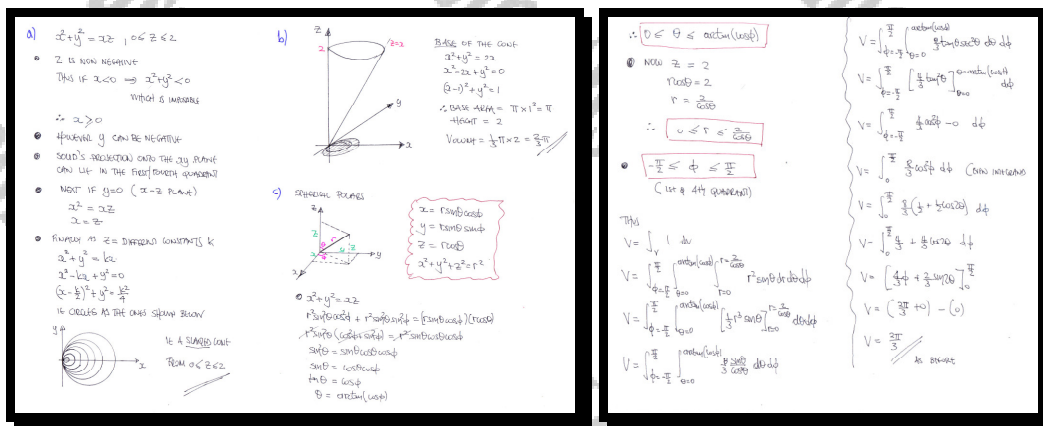 a) x²+y² = xz , 0≤z≤2
• Z IS NON NEGATIVE
THUS IF x<0 ⇒ x²+y²<0
WHICH IS IMPOSSIBLE
∴ x≥0
• HOWEVER y CAN BE NEGATIVE
• SOLID'S PROJECTION ONTO THE xy PLANE
CAN LIE IN THE FIRST/FOURTH QUADRANT
• NEXT IF y=0 (x-z PLANE)
x² = xz
x = z
• FINALLY AS Z = DIFFERENT CONSTANTS k
x²+y² = kx
x²-kx+y²=0
(x-k/2)²+y²=k²/4
IE CIRCLES AS THE ONES SHOWN BELOW
y
x
IE A SLANTED CONE
FROM 0≤z≤2
b)
z
2
z=x
y
x
BASE OF THE CONE
x²+y² = 2x
x²-2x+y²=0
(x-1)²+y²=1
∴ BASE AREA = π×1²=π
HEIGHT = 2
VOLUME = 1/3 π×2 = 2/3 π
c) SPHERICAL POLARS
z
z
θ
r
y
x
x = rsinθcosϕ
y = rsinθsinϕ
z = rcosθ
x²+y²+z²=r²
• x²+y²=xz
r²sin²θcos²ϕ + r²sin²θsin²ϕ = (rsinθcosϕ)(rcosθ)
r²sin²θ(cos²ϕ+sin²ϕ) = r²sinθcosθcosϕ
sin²θ = sinθcosθcosϕ
sinθ = cosθcosϕ
tanθ = cosϕ
θ = arctan(cosϕ)
∴ 0 ≤ θ ≤ arctan(cosϕ)
• NOW z = 2
rcosθ = 2
r = 2/cosθ
∴ 0 ≤ r ≤ 2/cosθ
• -π/2 ≤ ϕ ≤ π/2
(1st & 4th QUADRANT)
THUS
V = ∫_V 1 dv
V = ∫_{ϕ=-π/2}^{π/2} ∫_{θ=0}^{arctan(cosϕ)} ∫_{r=0}^{r=2/cosθ} r²sinθ dr dθ dϕ
V = ∫_{ϕ=-π/2}^{π/2} ∫_{θ=0}^{arctan(cosϕ)} [1/3 r³ sinθ]_{r=0}^{r=2/cosθ} dθ dϕ
V = ∫_{ϕ=-π/2}^{π/2} ∫_{θ=0}^{arctan(cosϕ)} 8/3 sinθ/cos³θ dθ dϕ
V = ∫_{ϕ=-π/2}^{π/2} ∫_{θ=0}^{arctan(cosϕ)} 8/3 tanθsec²θ dθ dϕ
V = ∫_{ϕ=-π/2}^{π/2} [4/3 tan²θ]_{θ=0}^{θ=arctan(cosϕ)} dϕ
V = ∫_{ϕ=-π/2}^{π/2} 4/3 cos²ϕ - 0 dϕ
V = ∫_0^{π/2} 8/3 cos²ϕ dϕ (EVEN INTEGRAND)
V = ∫_0^{π/2} 8/3 (1/2 + 1/2 cos2θ) dϕ
V = ∫_0^{π/2} 4/3 + 4/3 cos2θ dϕ
V = [4/3 ϕ + 2/3 sin2θ]_0^{π/2}
V = (2π/3 + 0) - (0)
V = 2π/3
AS BEFORE